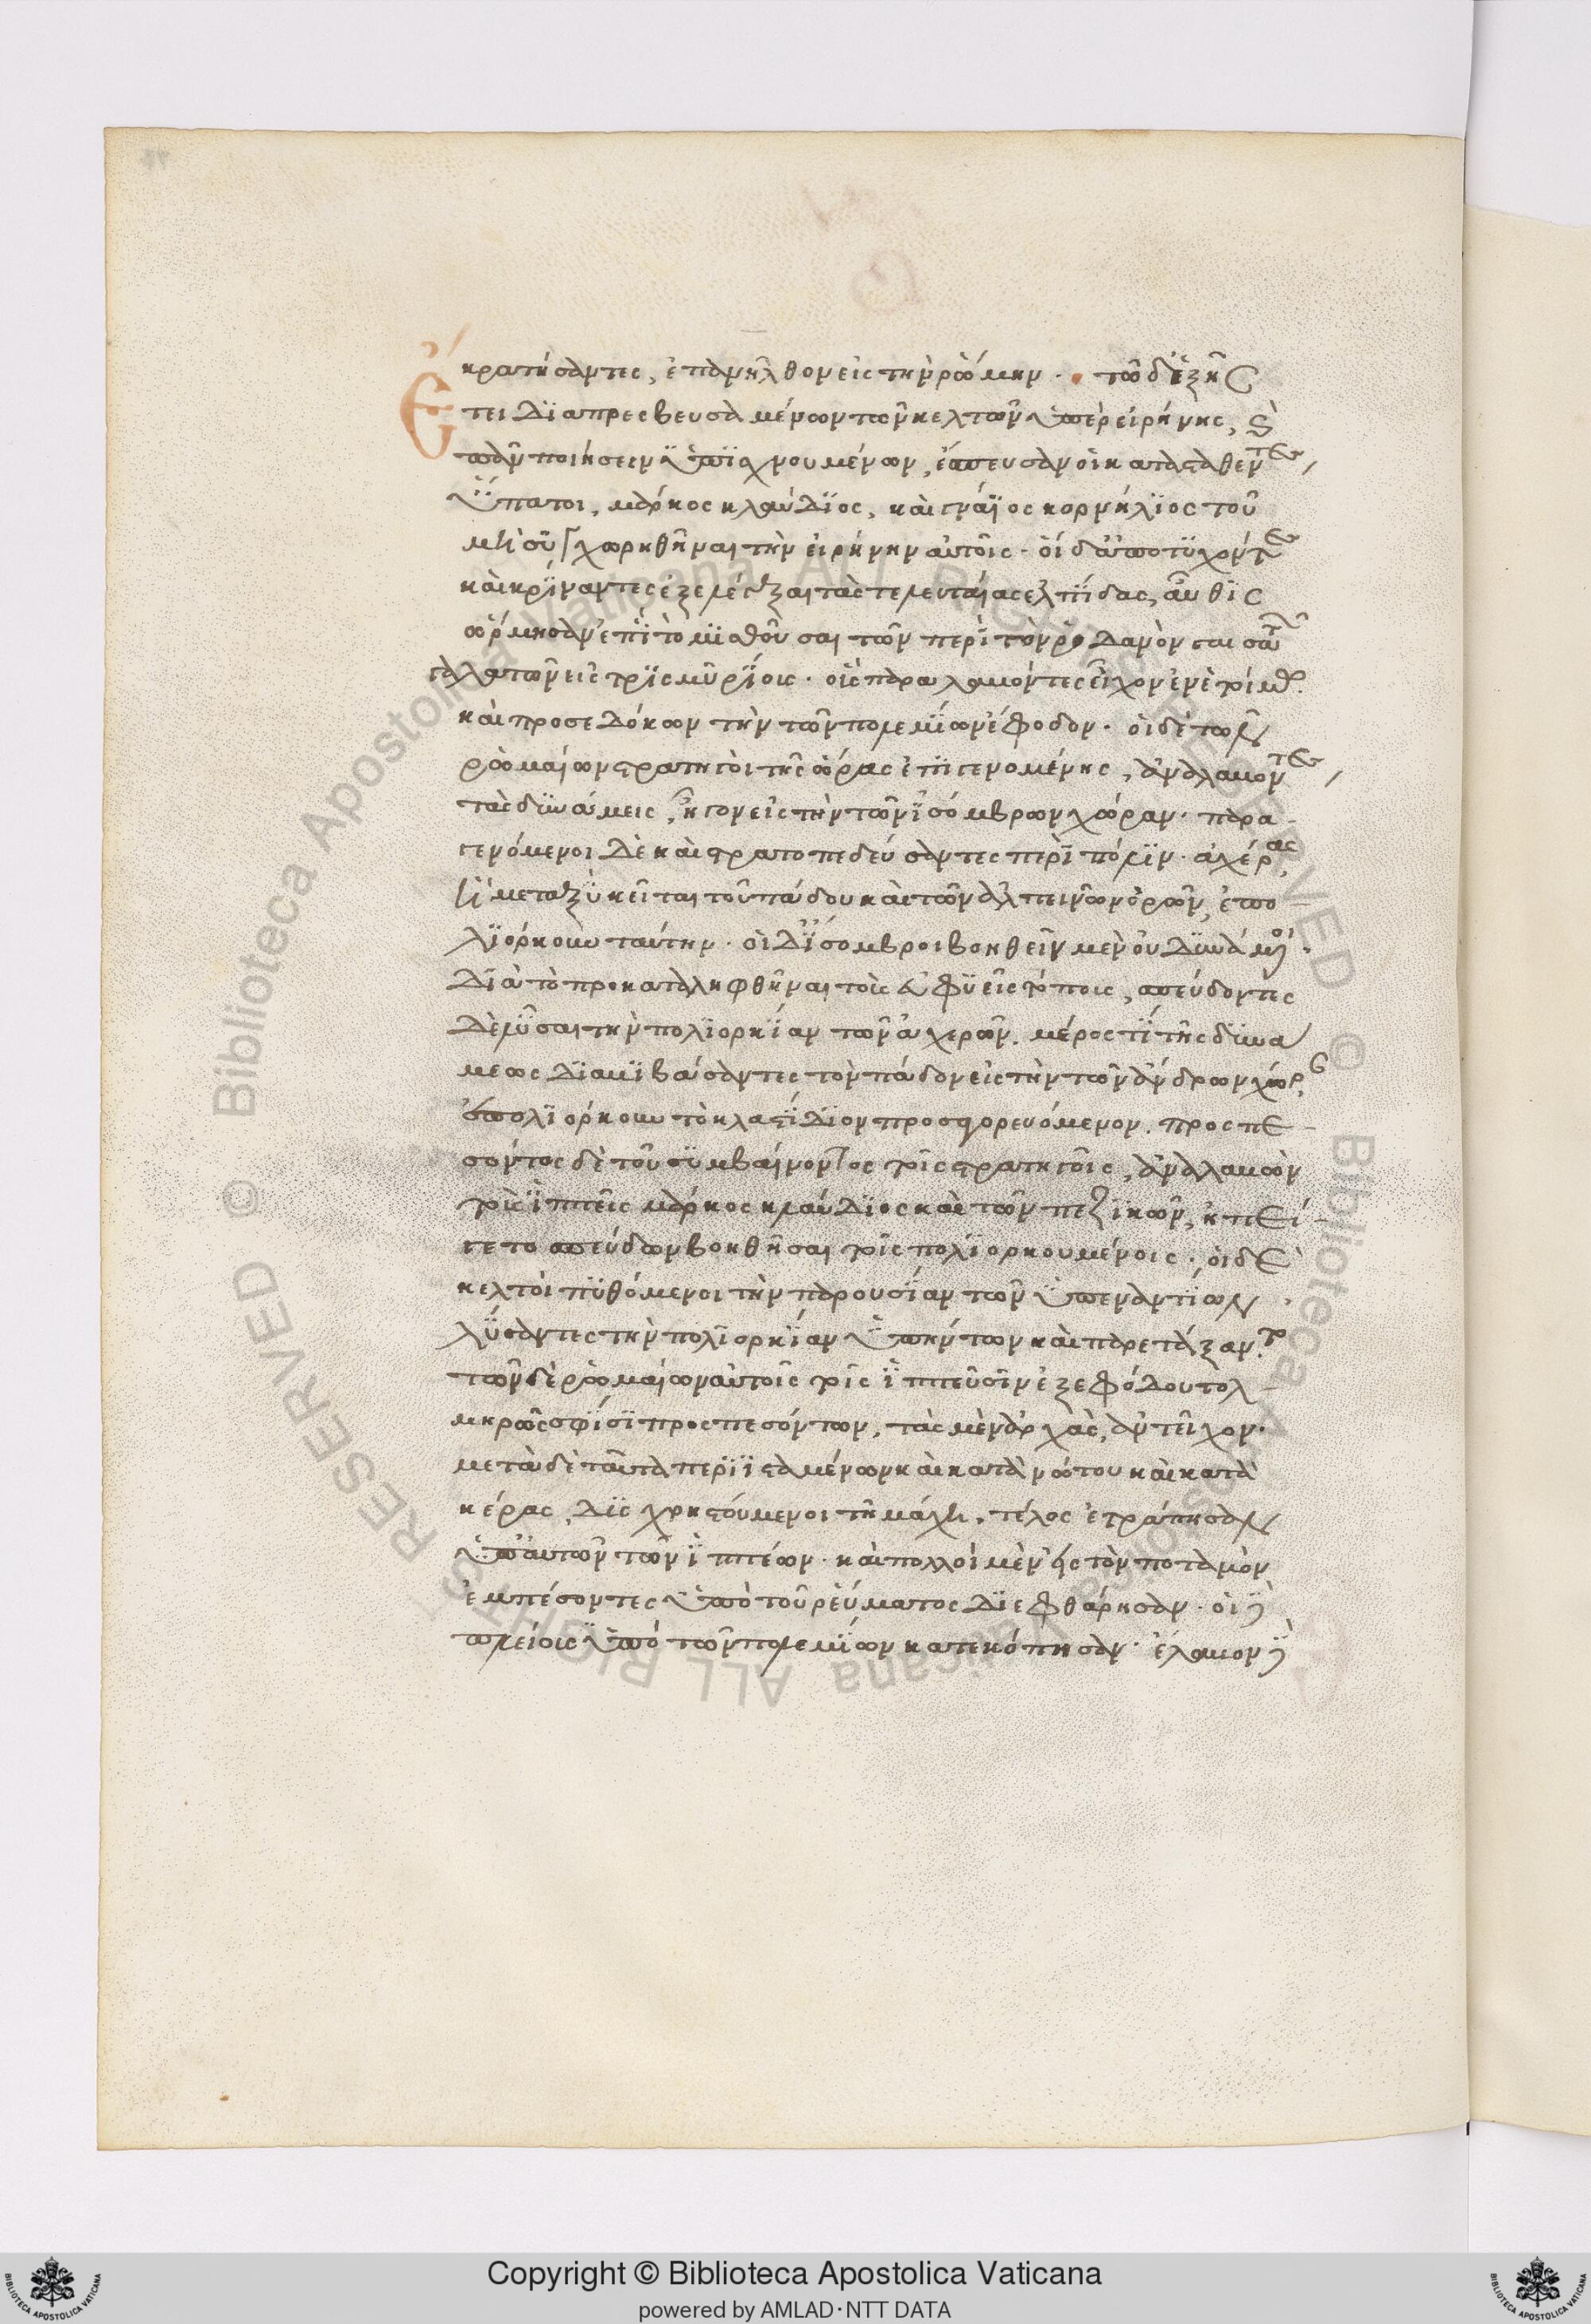 κρατήσαντες, ἐπανῆλθον εἰς τὴν ῥώμην · τῶ δ' ἑξῆς
Ἔτει διαπρεσβευσαμένων τῶν κελτῶν ὑπὲρ εἰρήνης, ϗ
πᾶν ποιήσειν ὑπισχνουμένων, ἔσπευσαν οἱ κατασταθέντων
ὕπατοι, μάρκος κλαύδιος, καὶ γνάϊος κορνήλιος τοῦ
μὴ συγχωρηθῆναι τὴν εἰρήνην αὐτοῖς · οἱ δ' ἀποτυχόντων
καὶ κρίναντες ἐξελέγξαι τὰς τελευταίας ἐλπίδας, αὖθις
ὥρμησαν ἐπὶ τὸ μισθοῦσαι τῶν περὶ τὸν ῥοδανὸν γαισάτων
γαλατῶν εἰς τρισμυρίοις · οἷς παραλαβόντες εἶχον ἐν ἑτοίμω
καὶ προσεδόκων τὴν τῶν πολεμίων ἔφοδον · οἱ δὲ τῶν
ῥωμαίων στρατηγοὶ τῆς ὥρας ἐπιγενομένης, ἀναλαβόντων
τὰς δυνάμεις, ἦγον εἰς τὴν τῶν ἰσόμβρων χώραν · παρα-
γενόμενοι δὲ καὶ στρατοπεδεύσαντες περὶ πόλιν · ἀχέρρας
ἣ μεταξὺ κεῖται τοῦ πάδου καὶ τῶν ἀλπεινῶν ὀρῶν, ἐπο-
λιόρκουν ταύτην · οἱ δ' ἴσομβροι βοηθεῖν μὲν οὐ δυνάμενοι ·
διὰ τὸ προκαταληφθῆναι τοὺς εὐφυεῖς τόπους, σπεύδοντες
δὲ λῦσαι τὴν πολιορκίαν τῶν ἀχερῶν. μέρος τί τῆς δυνά
μεως διαβιβάσαντες τὸν πάδον εἰς τὴν τῶν ἀνδρων χώραν
ἐπολιόρκουν τὸ κλαστίδιον προσαγορευόμενον. προσπε-
σόντος δὲ τοῦ συμβαίνοντος τοῖς στρατηγοῖς, ἀναλαβὼν
τοὺς ἱππεῖς μάρκος κλαύδιος καὶ τῶν πεζικῶν, ἠπεί-
γετο σπεύδων βοηθῆσαι τοῖς πολιορκουμένοις · οἱ δὲ
κελτοὶ πυθόμενοι τὴν παρουσίαν τῶν ὑπεναντίων ·
λύσαντες τὴν πολιορκίαν ὑπήντων καὶ παρετάξαντο.
τῶν δὲ ῥωμαίων αὐτοῖς τοῖς ἱππεῦσιν ἐξεφόδου τολ-
μηρῶς σφίσι προσπεσόντων, τὰς μὲν ἀρχὰς, ἀντεῖχον ·
μετὰ δὲ ταῦτα περιϊσταμένων καὶ κατὰ νώτου καὶ κατὰ
κέρας, δυσχρηστούμενοι τῆ μάχη, τέλος ἐτράπησαν
ὑπ' αὐτῶν τῶν ἱππέων · καὶ πολλοὶ μὲν εἰς τὸν ποταμὸν
ἐμπέσοντες ὑπὸ τοῦ ῥεύματος διεφθάρησαν · οἱ δὲ
πλείους ὑπὸ τῶν πολεμίων κατεκόπησαν · ἔλαβον δὲ